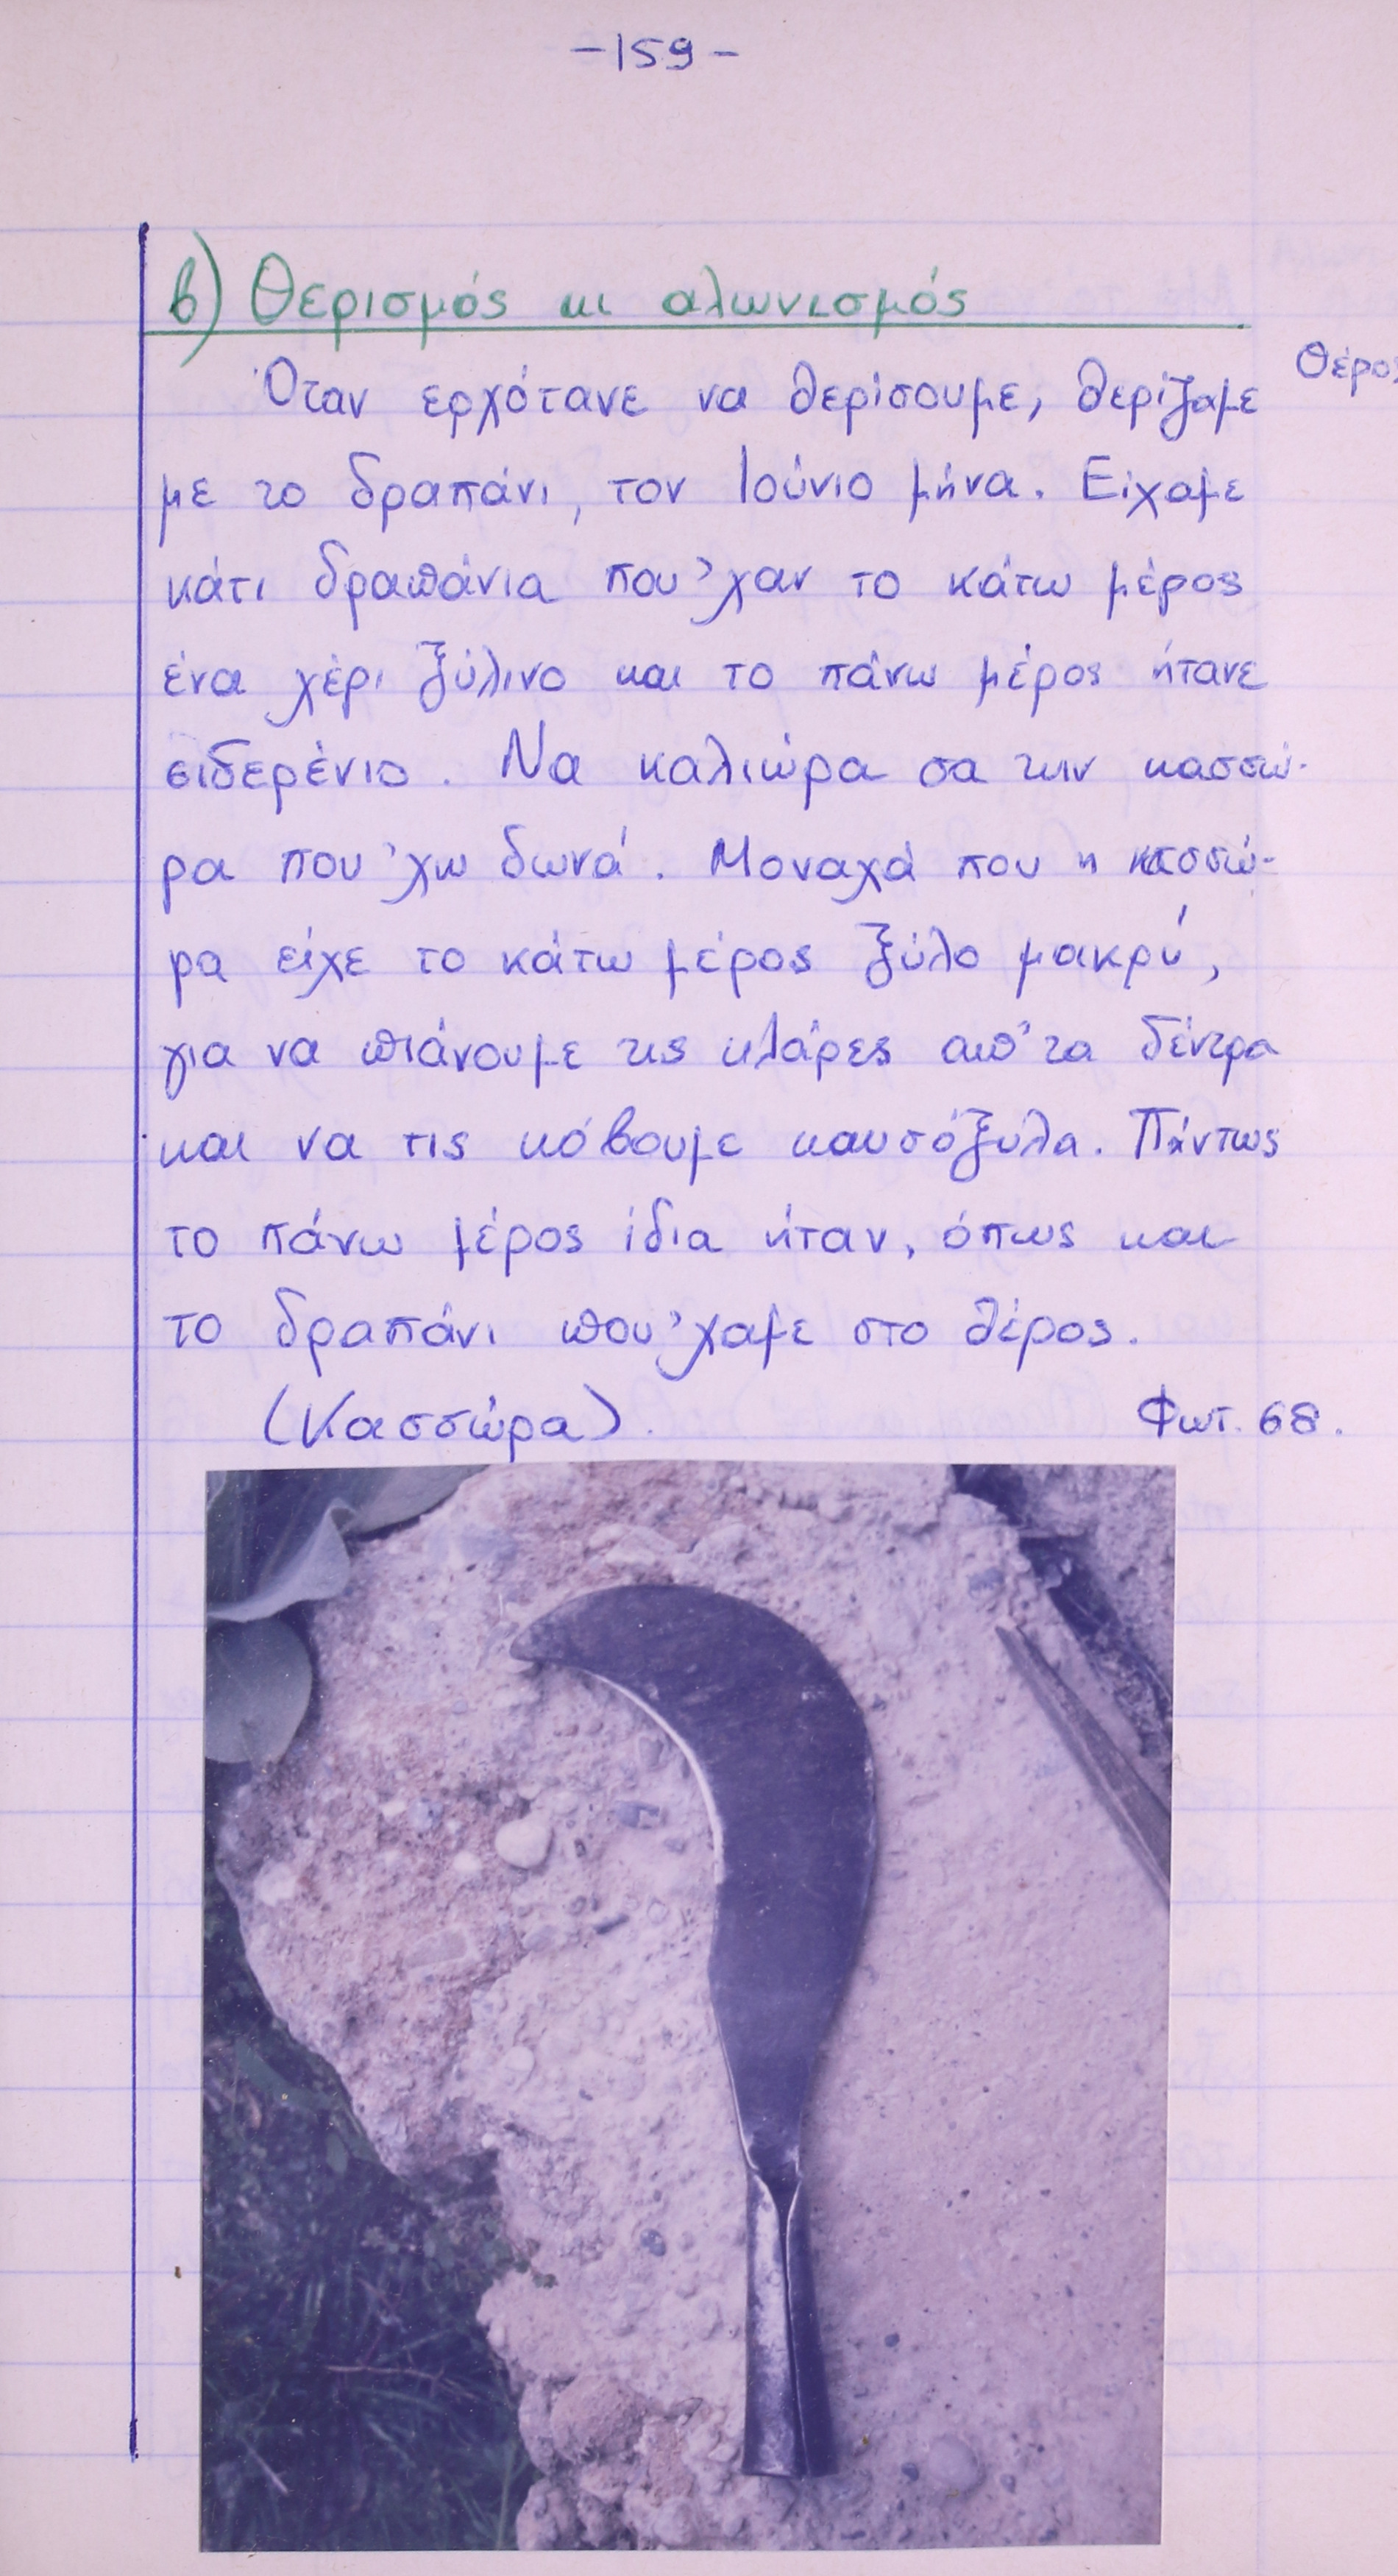 -159-
β) Θερισμός κι αλωνισμός
Θέρος
Όταν ερχότανε να θερίσουμε, θερίζαμε
με το δραπάνι, τον Ιούνιο μήνα. Είχαμε
κάτι δραπάνια που 'χαν το κάτω μέρος
ένα χέρι ξύλινο και το πάνω μέρος ήτανε
σιδερένιο. Να καλιώρα σα την κασσώ-
ρα που 'χω δωνά. Μοναχά που η κασσώ-
ρα είχε το κάτω μέρος ξύλο μακρύ,
για να πιάνουμε τις κλάρες απ' τα δέντρα
και να τις κόβουμε καυσόξυλα. Πάντως
το πάνω μέρος ίδια ήταν, όπως και
το δραπάνι που 'χαμε στο θέρος.
(Κασσώρα). Φωτ. 68.